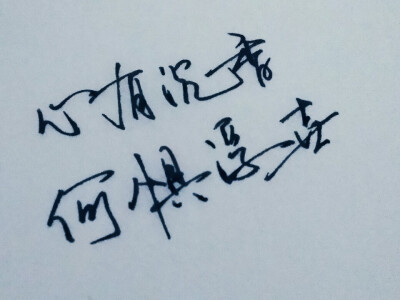 心有沉香
何惧浮世